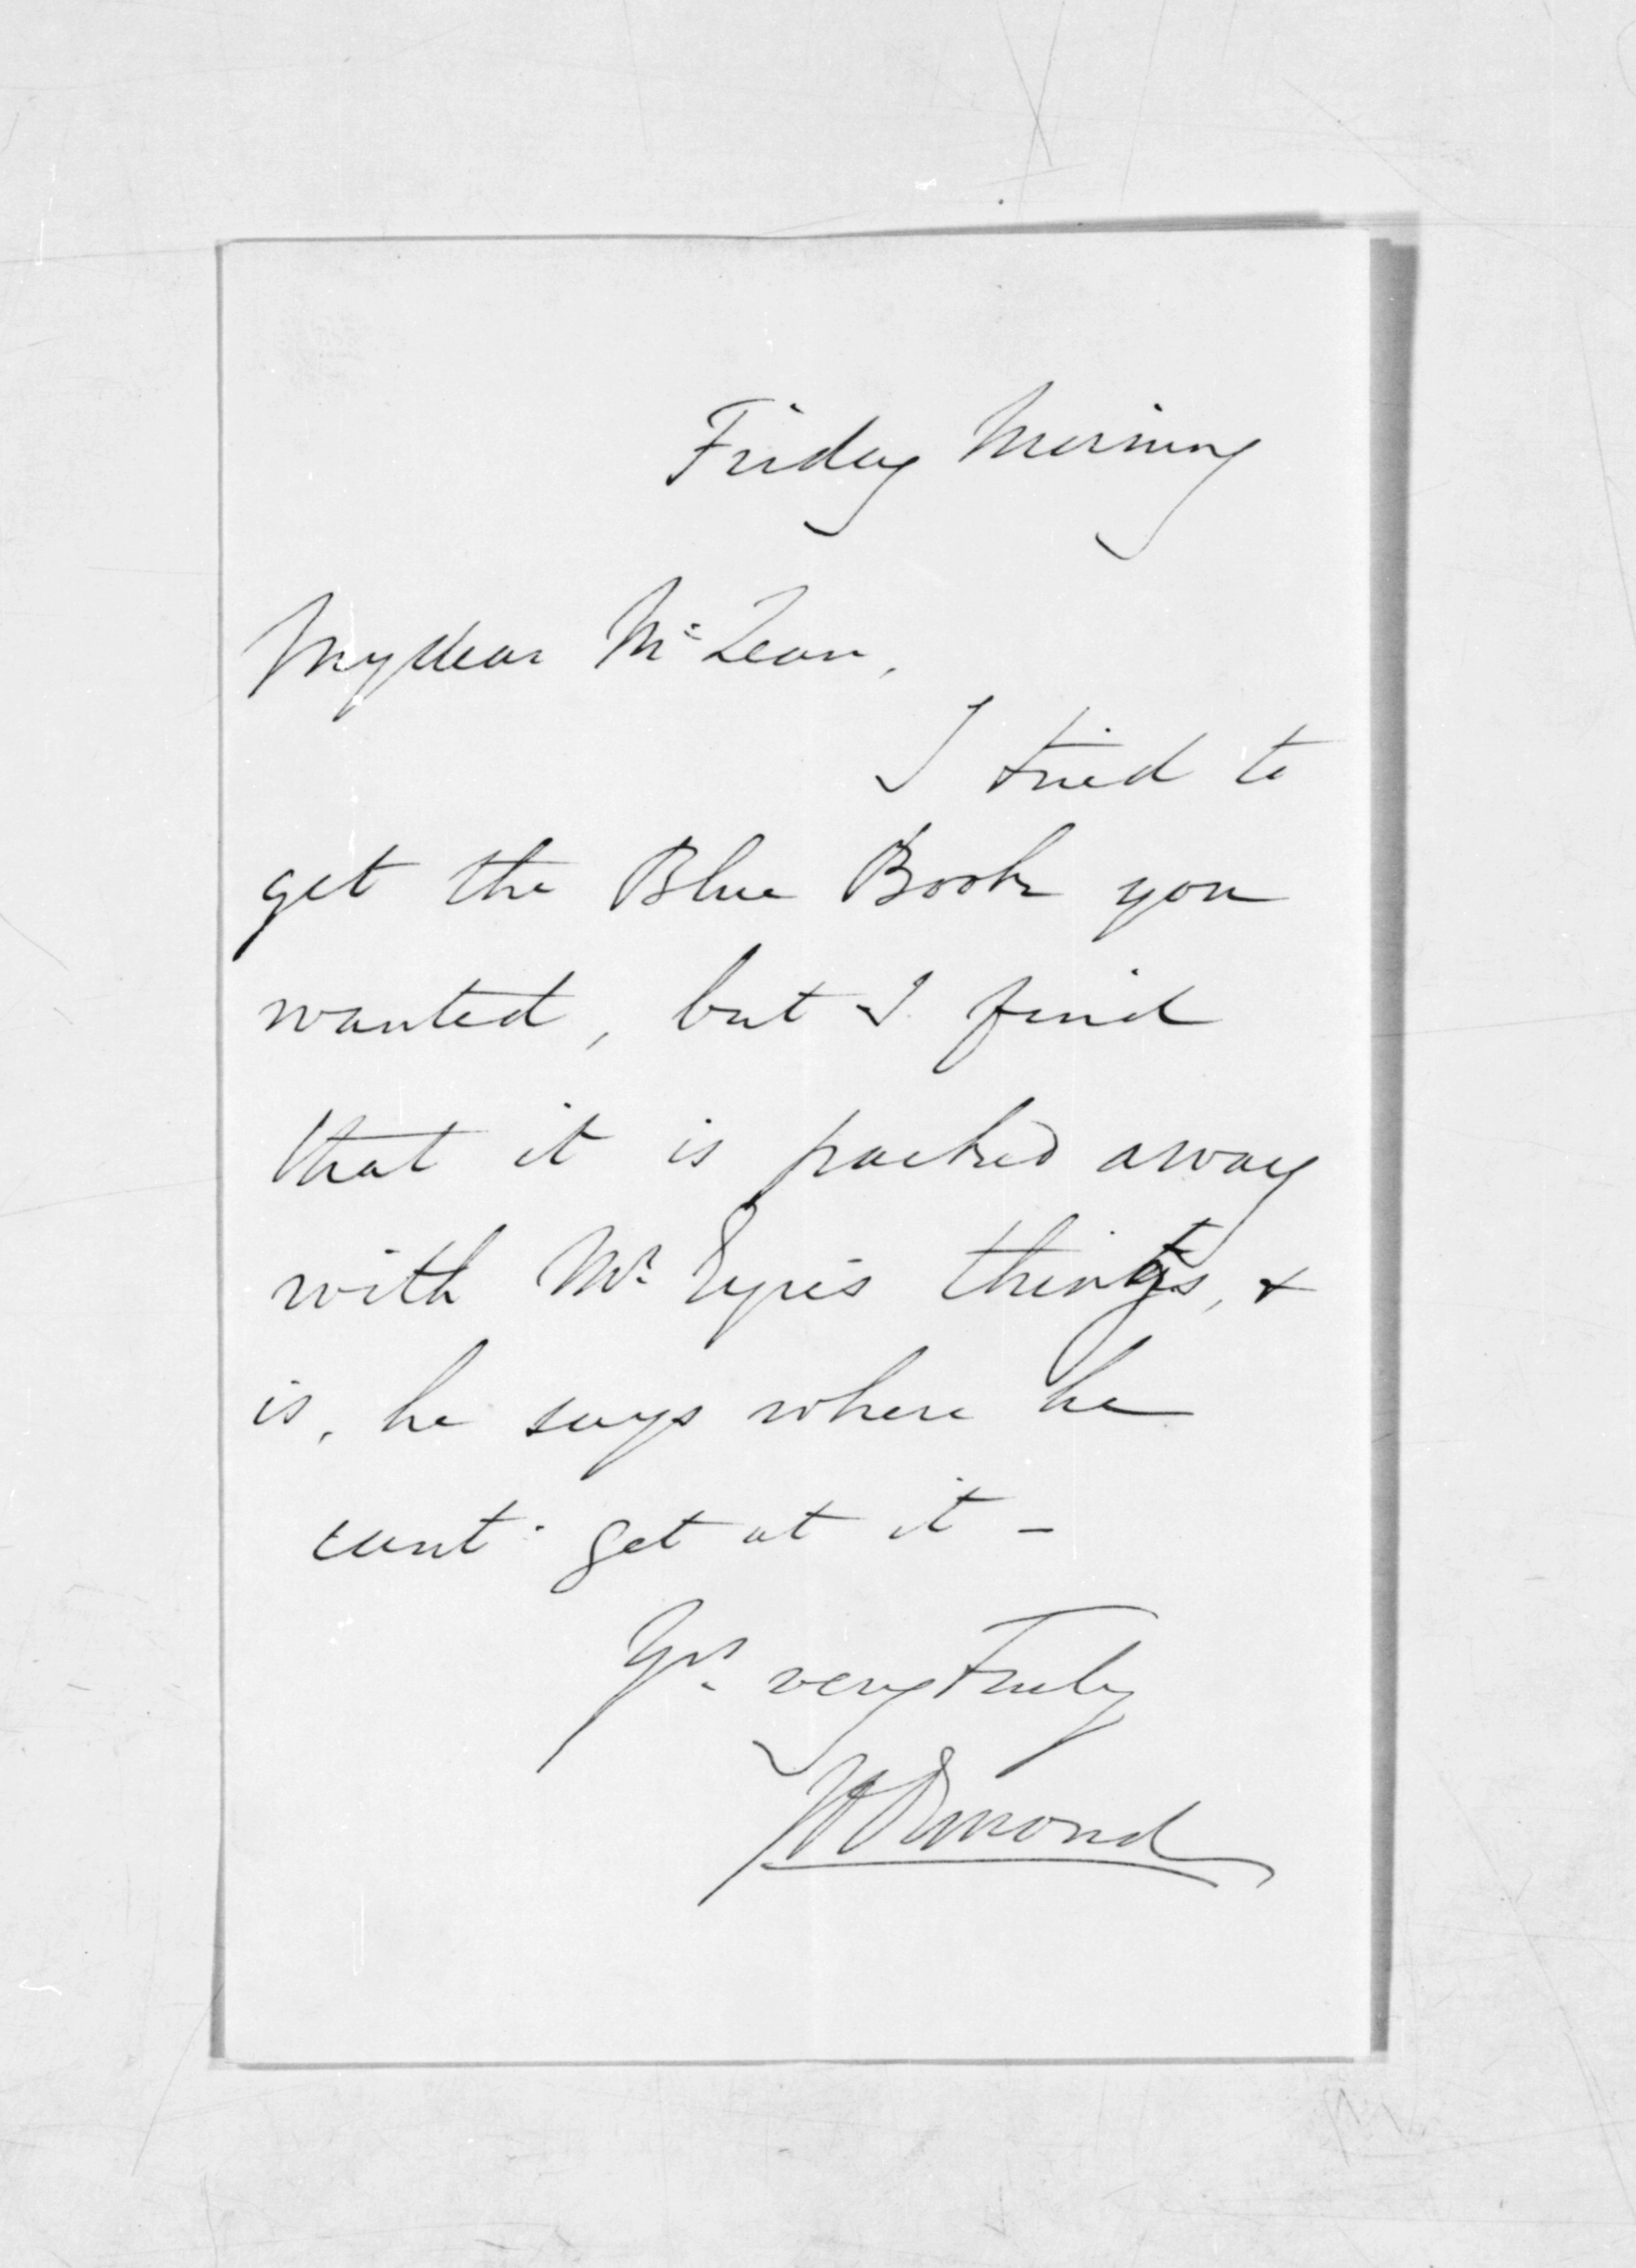 Friday Morning
My dear McLean,
I tried to
get the Blue Book you
wanted, but I find
that it is packed away
with Mr. Eyres things, &
is, he says where he
cant get at it –
Yrs. very Truly